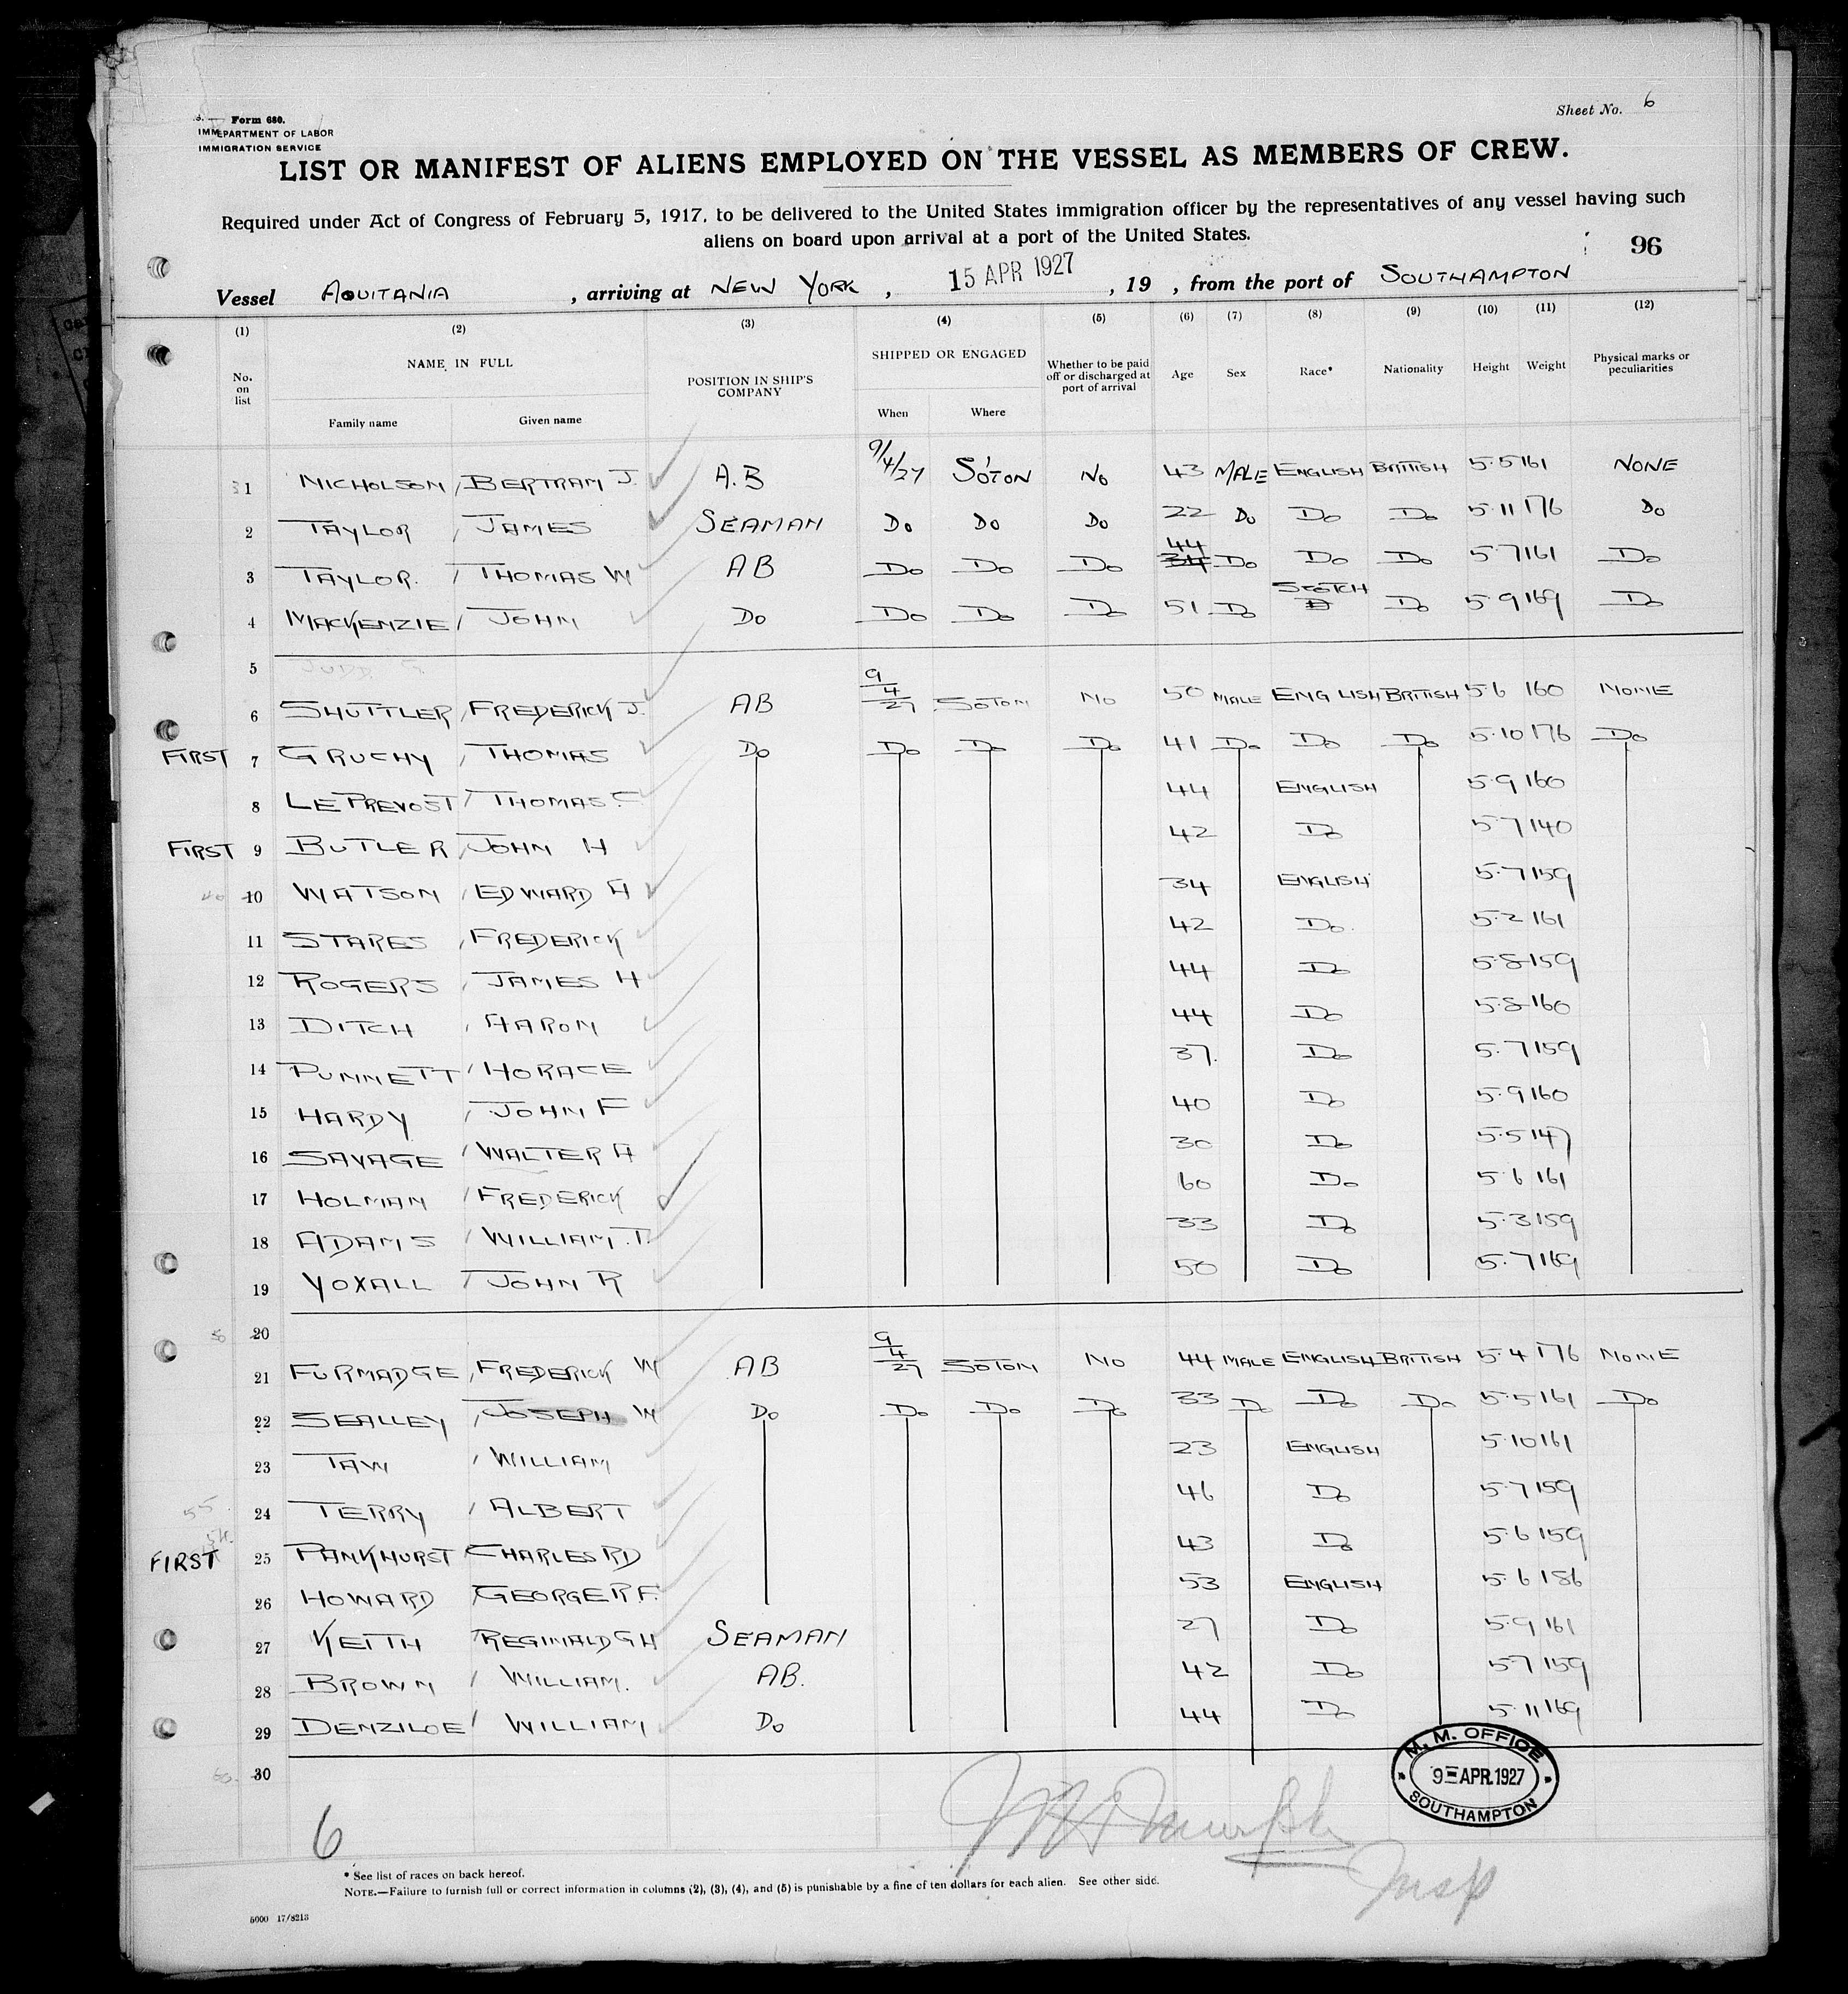 Sheet No. 6
Form 680.
DEPARTMENT OF LABOR
IMMIGRATION SERVICE
LIST OR MANIFEST OF ALIENS EMPLOYED ON THE VESSEL AS MEMBERS OF CREW.
Required under Act of Congress of February 5, 1917, to be delivered to the United States immigration officer by the representatives of any vessel having such
aliens on board upon arrival at a port of the United States.
96
Vessel AQUITANIA , arriving at NEW YORK , 15 APR 1927 , 19 , from the port of SOUTHAMPTON
(1) (2) (3) (4) (5) (6) (7) (8) (9) (10) (11) (12)
No. on list NAME IN FULL POSITION IN SHIP'S COMPANY SHIPPED OR ENGAGED Whether to be paid off or discharged at port of arrival Age Sex Race* Nationality Height Weight Physical marks or peculiarities
Family name Given name When Where
1 NICHOLSON, BERTRAM J. A.B 9/4/27 SO'TON NO 43 MALE ENGLISH BRITISH 5.5 161 NONE
2 TAYLOR, JAMES SEAMAN DO DO DO 22 DO DO DO 5.11 176 DO
3 TAYLOR. THOMAS W AB DO DO DO 44 DO DO DO 5.7 161 DO
4 MACKENZIE, JOHN DO DO DO DO 51 DO SCOTCH DO 5.9 169 DO
5 JUDD. G.
6 SHUTTLER, FREDERICK J. AB 9/4/27 SOTON NO 50 MALE ENGLISH BRITISH 5.6 160 NONE
FIRST 7 GRUCHY, THOMAS DO DO DO DO 41 DO DO DO 5.10 176 DO
8 LE PREVOST, THOMAS 44 ENGLISH 5.9 160
FIRST 9 BUTLER, JOHN H 42 DO 5.7 140
40 10 WATSON, EDWARD A 34 ENGLISH 5.7 159
11 STARES, FREDERICK 42 DO. 5.2 161
12 ROGERS, JAMES H 44 DO 5.8 159
13 DITCH, AARON 44 DO 5.8 160
14 PUNNETT, HORACE 37. DO 5.7 159
15 HARDY, JOHN F 40 DO 5.9 160
16 SAVAGE, WALTER A 30 DO 5.5 147
17 HOLMAN, FREDERICK 60 DO 5.6 161
18 ADAMS, WILLIAM.T. 33 DO 5.3 159
19 YOXALL, JOHN R 50 DO 5.7 169
20
21 FURMADGE, FREDERICK W AB 9/4/27 SOTON NO 44 MALE ENGLISH BRITISH 5.4 176 NONE
22 SEALLEY, JOSEPH W DO DO DO DO 33 DO DO DO 5.5 161 DO
23 TAW, WILLIAM 23 ENGLISH 5.10 161
55 24 TERRY, ALBERT 46 DO 5.7 159
FIRST 25 PANKHURST, CHARLES RD 43 DO 5.6 159
26 HOWARD GEORGE R F. 53 ENGLISH 5.6 186
27 KEITH REGINALD G H SEAMAN 27 DO 5.9 161
28 BROWN, WILLIAM. AB. 42 DO 5.7 159
29 DENZILOE, WILLIAM DO 44 DO 5.11 169
30
M. M. OFFICE
9 APR.1927
SOUTHAMPTON
6
Insp
* See list of races on back hereof.
NOTE.—Failure to furnish full or correct information in columns (2), (3), (4), and (5) is punishable by a fine of ten dollars for each alien. See other side.
5000 17/8213